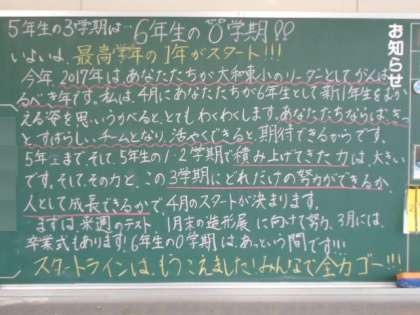 5年生の3学期は…6年生の0学期!!
いよいよ、最高学年の1年がスタート!!!
今年2017年は、あなたたちが大和東小のリーダーとしてがんば
るべき年です。私は、4月にあなたたちが6年生として新1年生をむか
える姿を思いうかべると、とてもわくわくします。あなたたちならば、きっ
と、すばらしいチームとなり、活やくできると期待できるからです。
5年生まで、そして、5年生の1・2学期で積み上げてきた力は、大きい
です。そして、その力と、この3学期にどれだけの努力ができるか、
人として成長できるかで、4月のスタートが決まります。
まずは、来週のテスト、1月末の造形展に向けて努力、3月には、
卒業式もあります!6年生の0学期は、あっという間です!!!
スタートラインは、もうこえました!みんなで全力ゴー!!!
お知らせ